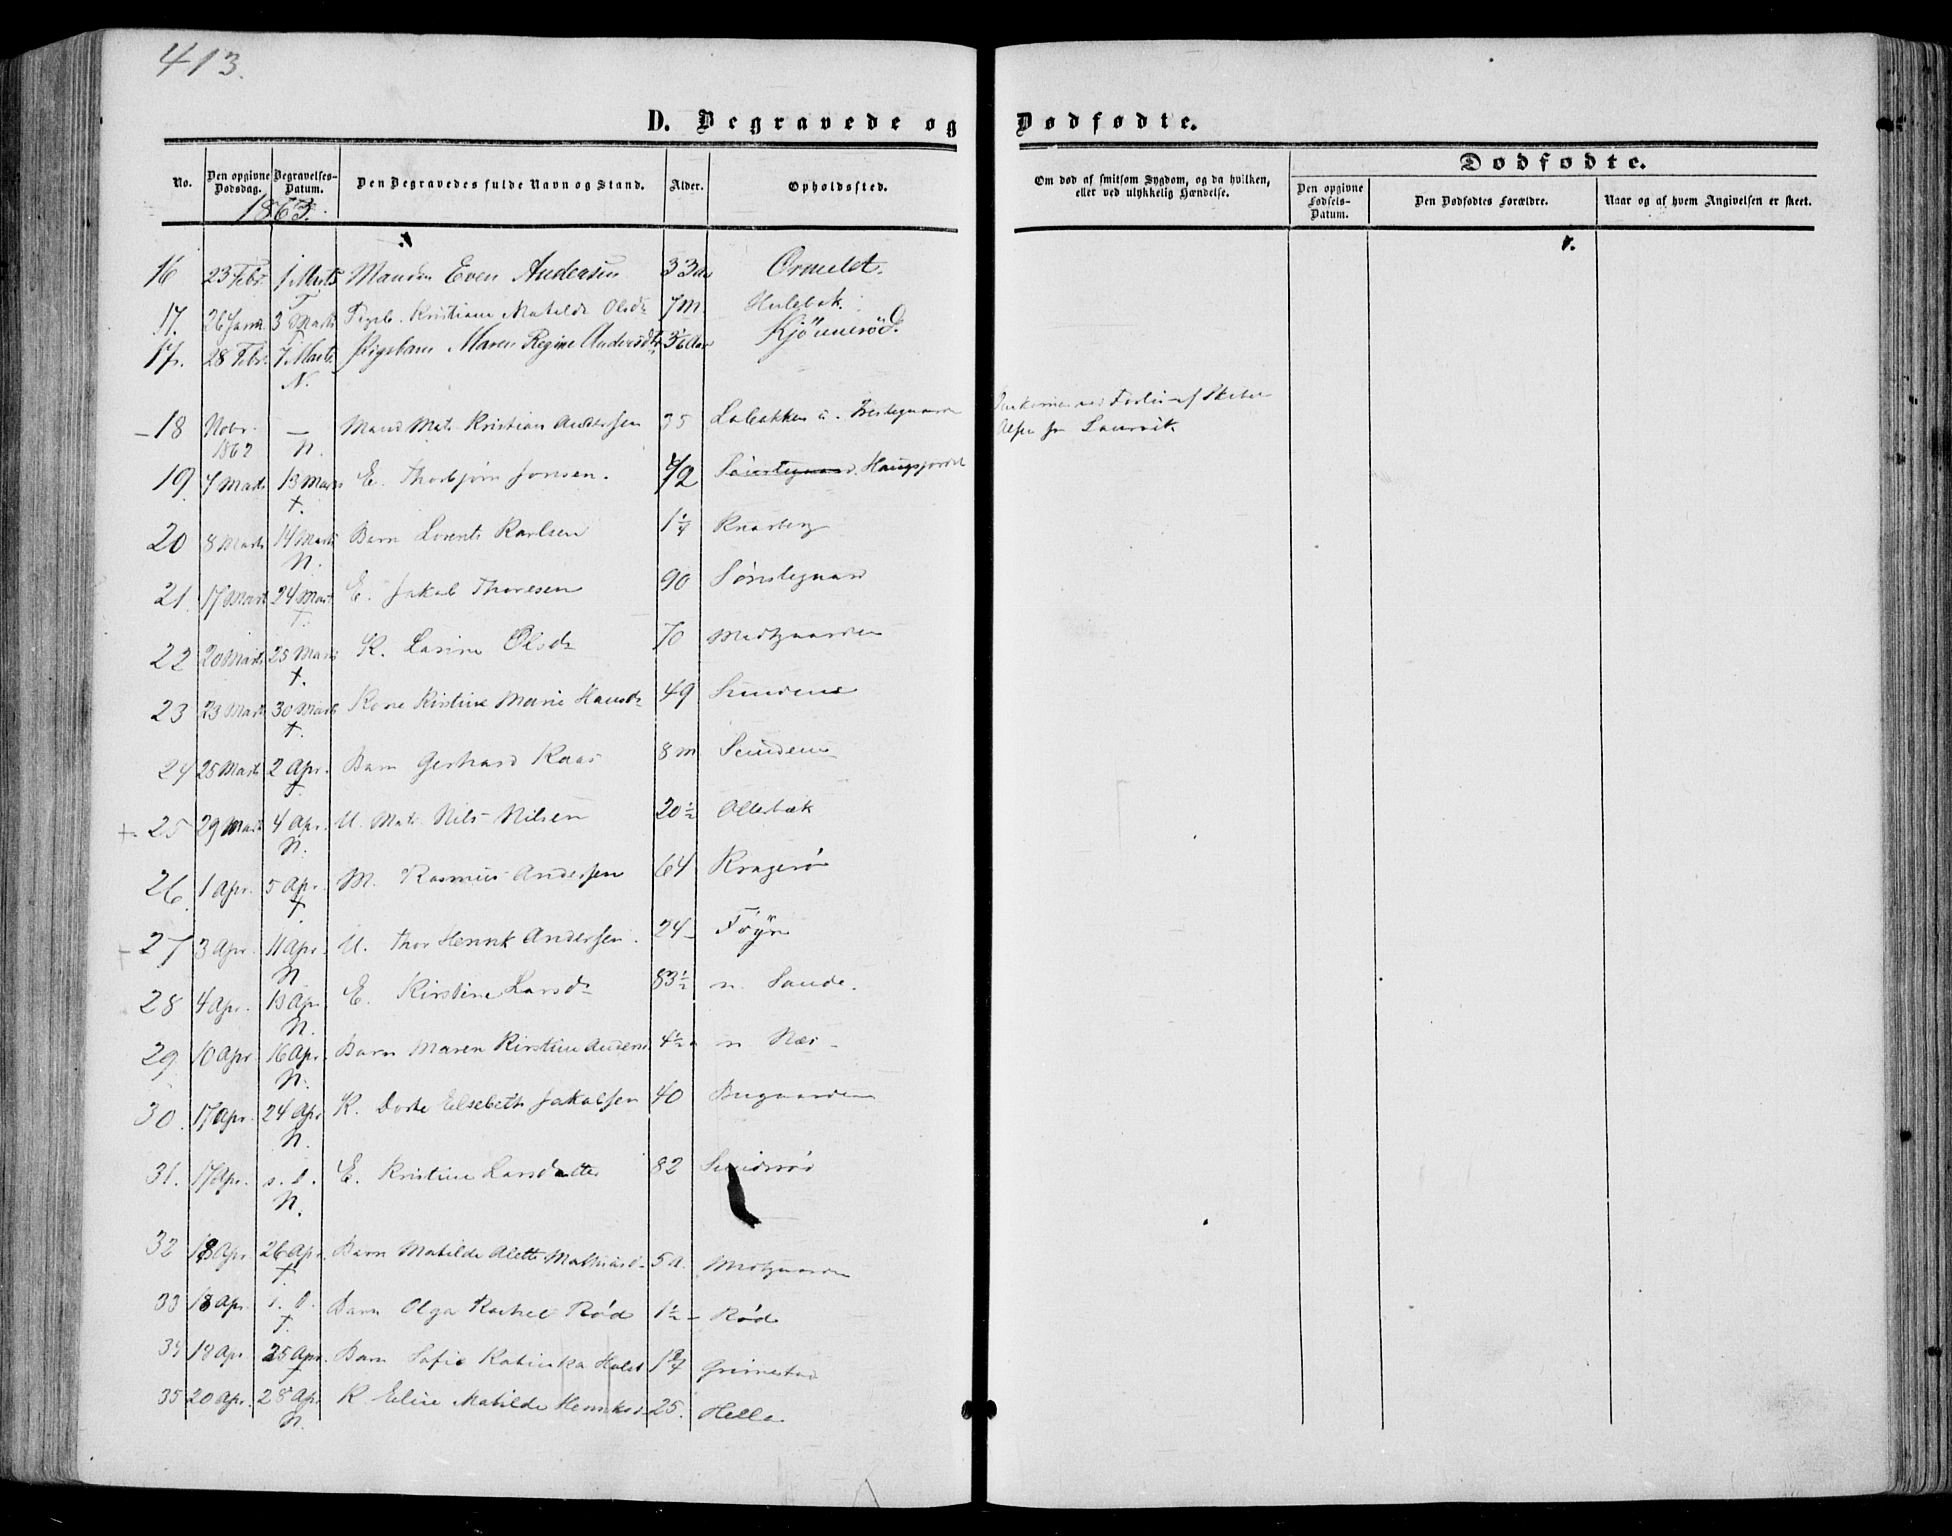 413.
D. Begravede og Dødfødte.
No. Den opgivne Dødsdag. Begravelses-Datum. Den Begravedes fulde Navn og Stand. Alder. Opholdssted. Om død af smitsom Sygdom, og da hvilken, eller ved ulykkelig Hændelse. Dødfødte. Den opgivne Fødsels-Datum. Den Dødfødtes Forældre. Naar og af hvem Angivelsen er skeet.
1863.
16 23 Febr. 1 Marts Manden Even Andersen 33 Ormelet.
T
17. 26 Janr 3 Marts Pigeb. Kristiane Matilde Olsdr 7 M. Hulebak.
T
17. 28 Febr. 7 Marts Pigebarn Maren Regine Andersdtr Kjönneröd.
N.
18 Nobr. 1862 — Mand Mat. Kristian Andersen 35 Labakken
N.
19 7 Marts 13 Marts E. Thorbjørn Jonsen. 72
†.
20 8 Marts 14 Marts Barn Lorents Karlsen 1 1/4 Knarberg
N.
21. 17 Marts 24 Marts E. Jakob Thoresen 90 Sønstegaard
T.
22 20 Marts 25 Marts K. Larine Olsdr 70 Midtgaarden
†.
23 23 Marts 30 Marts Kone Kirstine Marie Hansdr 49 Sundene
†.
24 25 Marts 2 Apr. Barn Gerhard Kaas 8 m Sundene
†
25 29 Marts 4 Apr. U. Mat. Nils Nilsen 20 1/2 Ollebæk
N.
26 1 Apr. 5 Apr. M. Rasmus Andersen 64 Kragerø
†
27 3 Apr. 11 Apr. U. Thor Henrik Andersen. 24 Föyn
N
28 4 Apr. 13 Apr. E. Kirstine Larsdr 83 1/2 n. Sande.
N.
29 10 Apr. 16 Apr. Barn Maren Kirstine Anders 4 1/2 n Næs
N.
30. 17 Apr. 24 Apr. K. Dorte Elsebeth Jakobsen 40 Bugaarden
N.
31. 17 Apr. s. D. E. Kristine Larsdatter 82
N.
32 18 Apr. 26 Apr. Barn Matilde Alette Mathiasd 5 a. Midtgaarden
†
33 18 Apr. s. D. Barn Olga Rachel Rød 1 1/2 Rød
†.
34 18 Apr. 25 Apr. Barn Sofie Katinka Holst Grimestad
†
35 20 Apr. 28 Apr K Elise Matilde Henriksd 25. Hella
N.